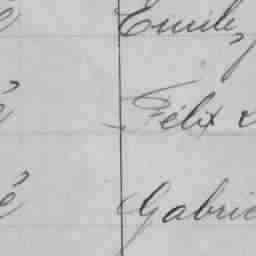 Emile,
é Félix &
é Gabrie